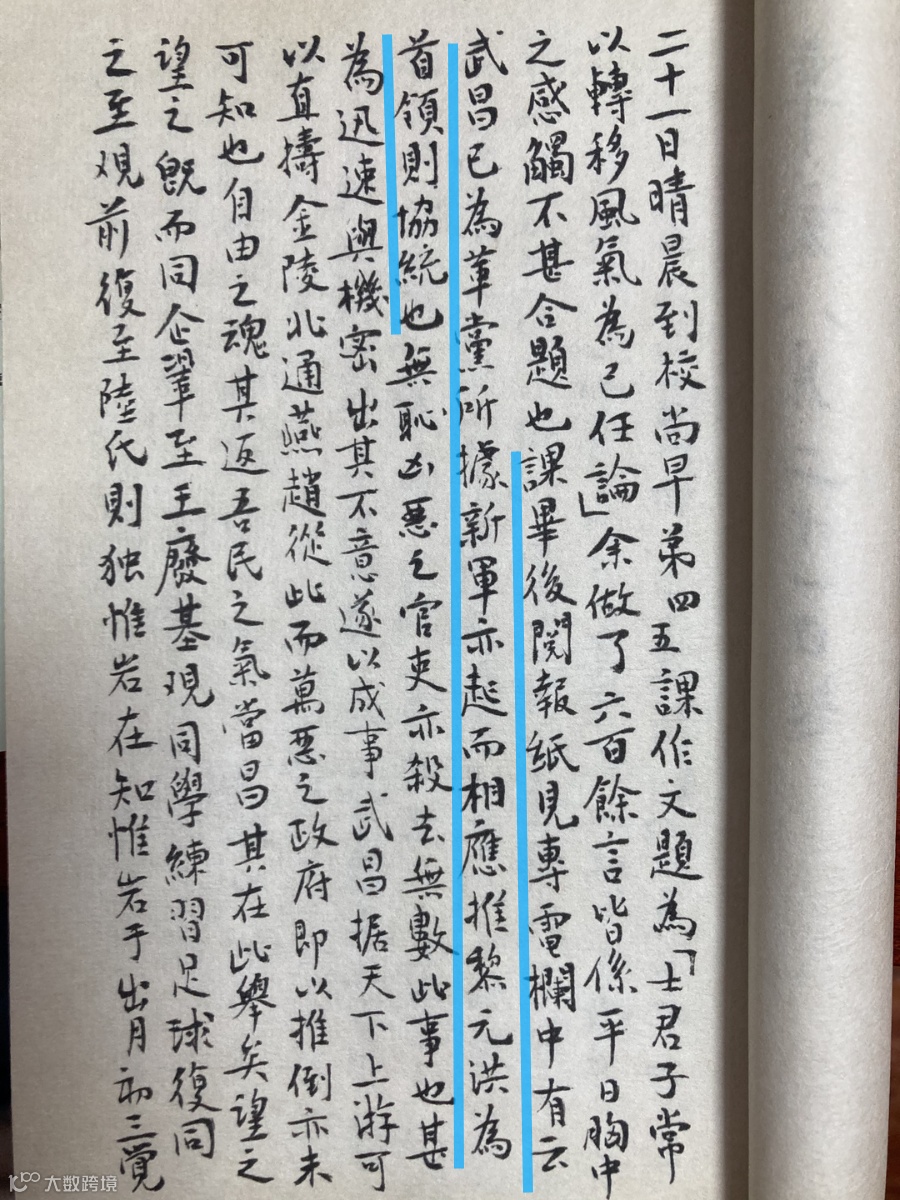 二十一日晴晨到校尚早第四五課作文題為「士君子常
以轉移風氣為己任論」余做了六百餘言皆係平日胸中
之感觸不甚合題也課畢後閱報紙見專電欄中有云
武昌已為革黨所據新軍亦起而相應推黎元洪為
首領則協統也無恥凶惡之官吏亦殺去無數此事也甚
為迅速與機密出其不意遂以成事武昌据天下上游可
以直擣金陵北通燕趙從此而萬惡之政府即以推倒亦未
可知也自由之魂其返吾民之氣當昌其在此舉矣望之
望之既而同企鞏至王廢基观同學練習足球復同
之至观前復至陸氏則独惟岩在知惟岩于出月初三覺
大数跨境